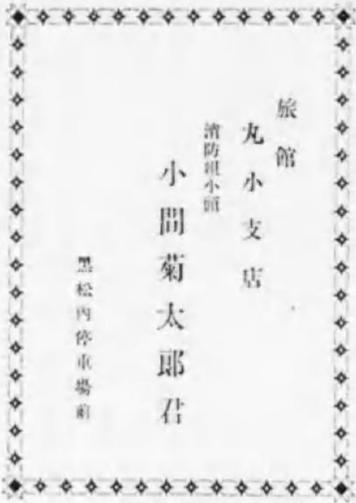 旅館
丸小支店
消防組小頭
小間菊太郎君
黒松内停車場前